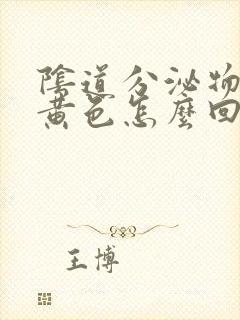 陰道分泌物
黃色怎麼回
王博